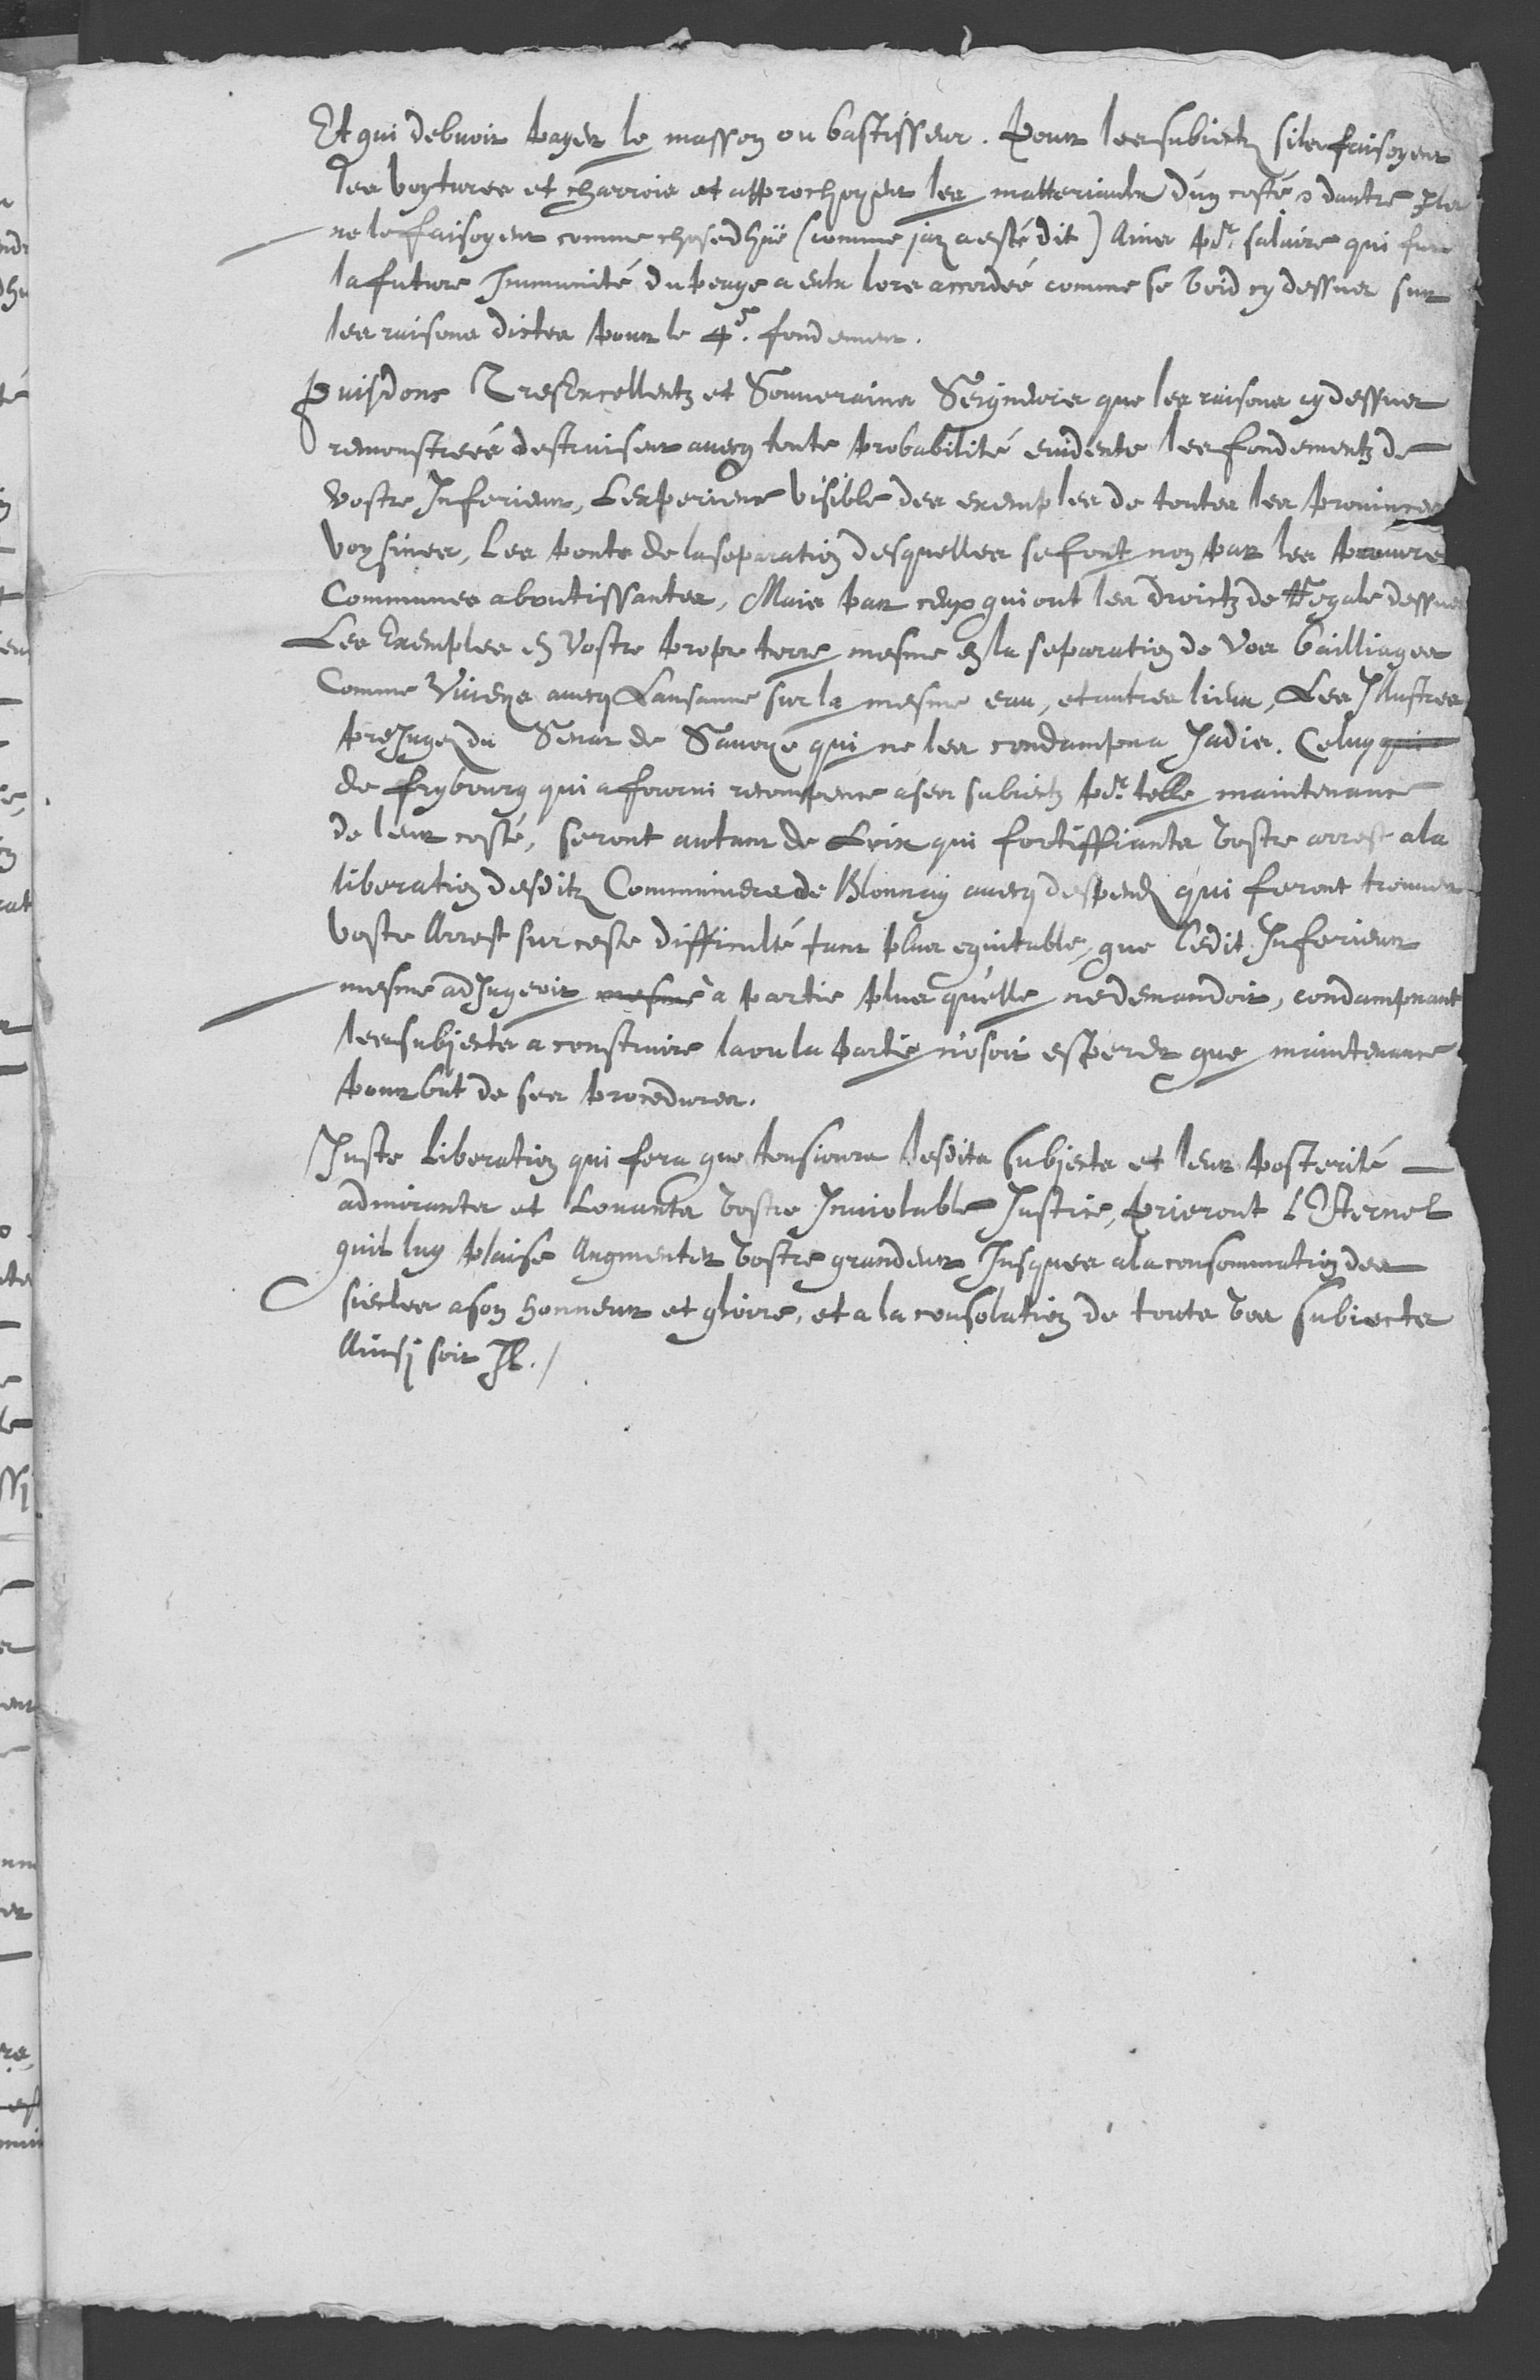 Et qui debvoit payer le masson ou bastisseur. Pour les subiectz silz faisoyent
les voytures et charrois et approchoyent les matteriaulx d'un costé & dautre Ilz
ne le faisoyent comme chose dhuë (comme jaz a esté dit) Ains pr. salaire qui fut
la future Immunité du peage a eulx lors accordée comme se void cy dessus sur
les raisons dictes pour le 4e. fondement.
Puisdonc Tresexcellentz et Souverains Seigneurs que les raisons cy dessus
remonstrées destruisent avecq toute probabilité evidente les fondementz de
vostre Inferieur, L'experience visible des exemples de toutes les provinces
voysines, Les ponts de la separation desquelles se font non par les pauvres
Communes aboutissantes, Mais par ceux qui ont les droictz de Regale dessus
Les Exemples en Vostre propre terre mesme en la separation de Vos bailliages
Comme Viveys avecq Lausanne sur la mesme eau, et autres lieux, Les Illustres
preJugez du Senat de Savoye qui ne les condampna Jadis. Celuy qui
de frybourg qui a fourni recompence a ses subiectz pr. telle maintenance
de leur costé, seront autant de Loix qui fortiffiants vostre arrest a la
liberation desditz Communiers de Blonnay avecq despendz qui feront trouver
vostre Arrest sur ceste difficulté tant plus equitable, que ledit Inferieur
mesme adJugeoit mesme a partie plus qu'elle ne demandoit, condampnant
les subjects a construire la ou la partie n'osoit esperer que maintenance
pour but de ses procedures.
Juste Liberation qui fera que tousiours lesdits subjects et leur posterité
admirants et Louants vostre Inviolable Justice, prieront L'Eternel
quil luy plaise Augmenter vostre grandeur Jusques a la consommation des
siecles a son honneur et gloire, et a la consolation de touts vos subiects
Ainsj soit Il./